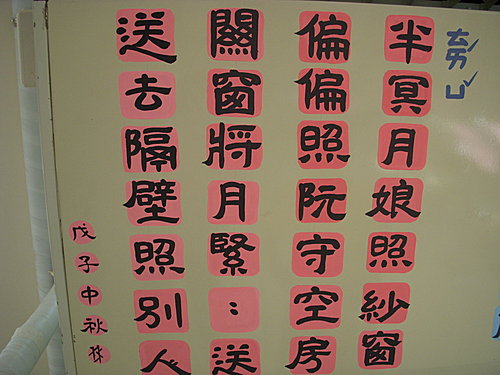 半冥月娘照紗窗
偏偏照阮守空房
關窗將月緊：送
送去隔壁照別人
戊子中秋